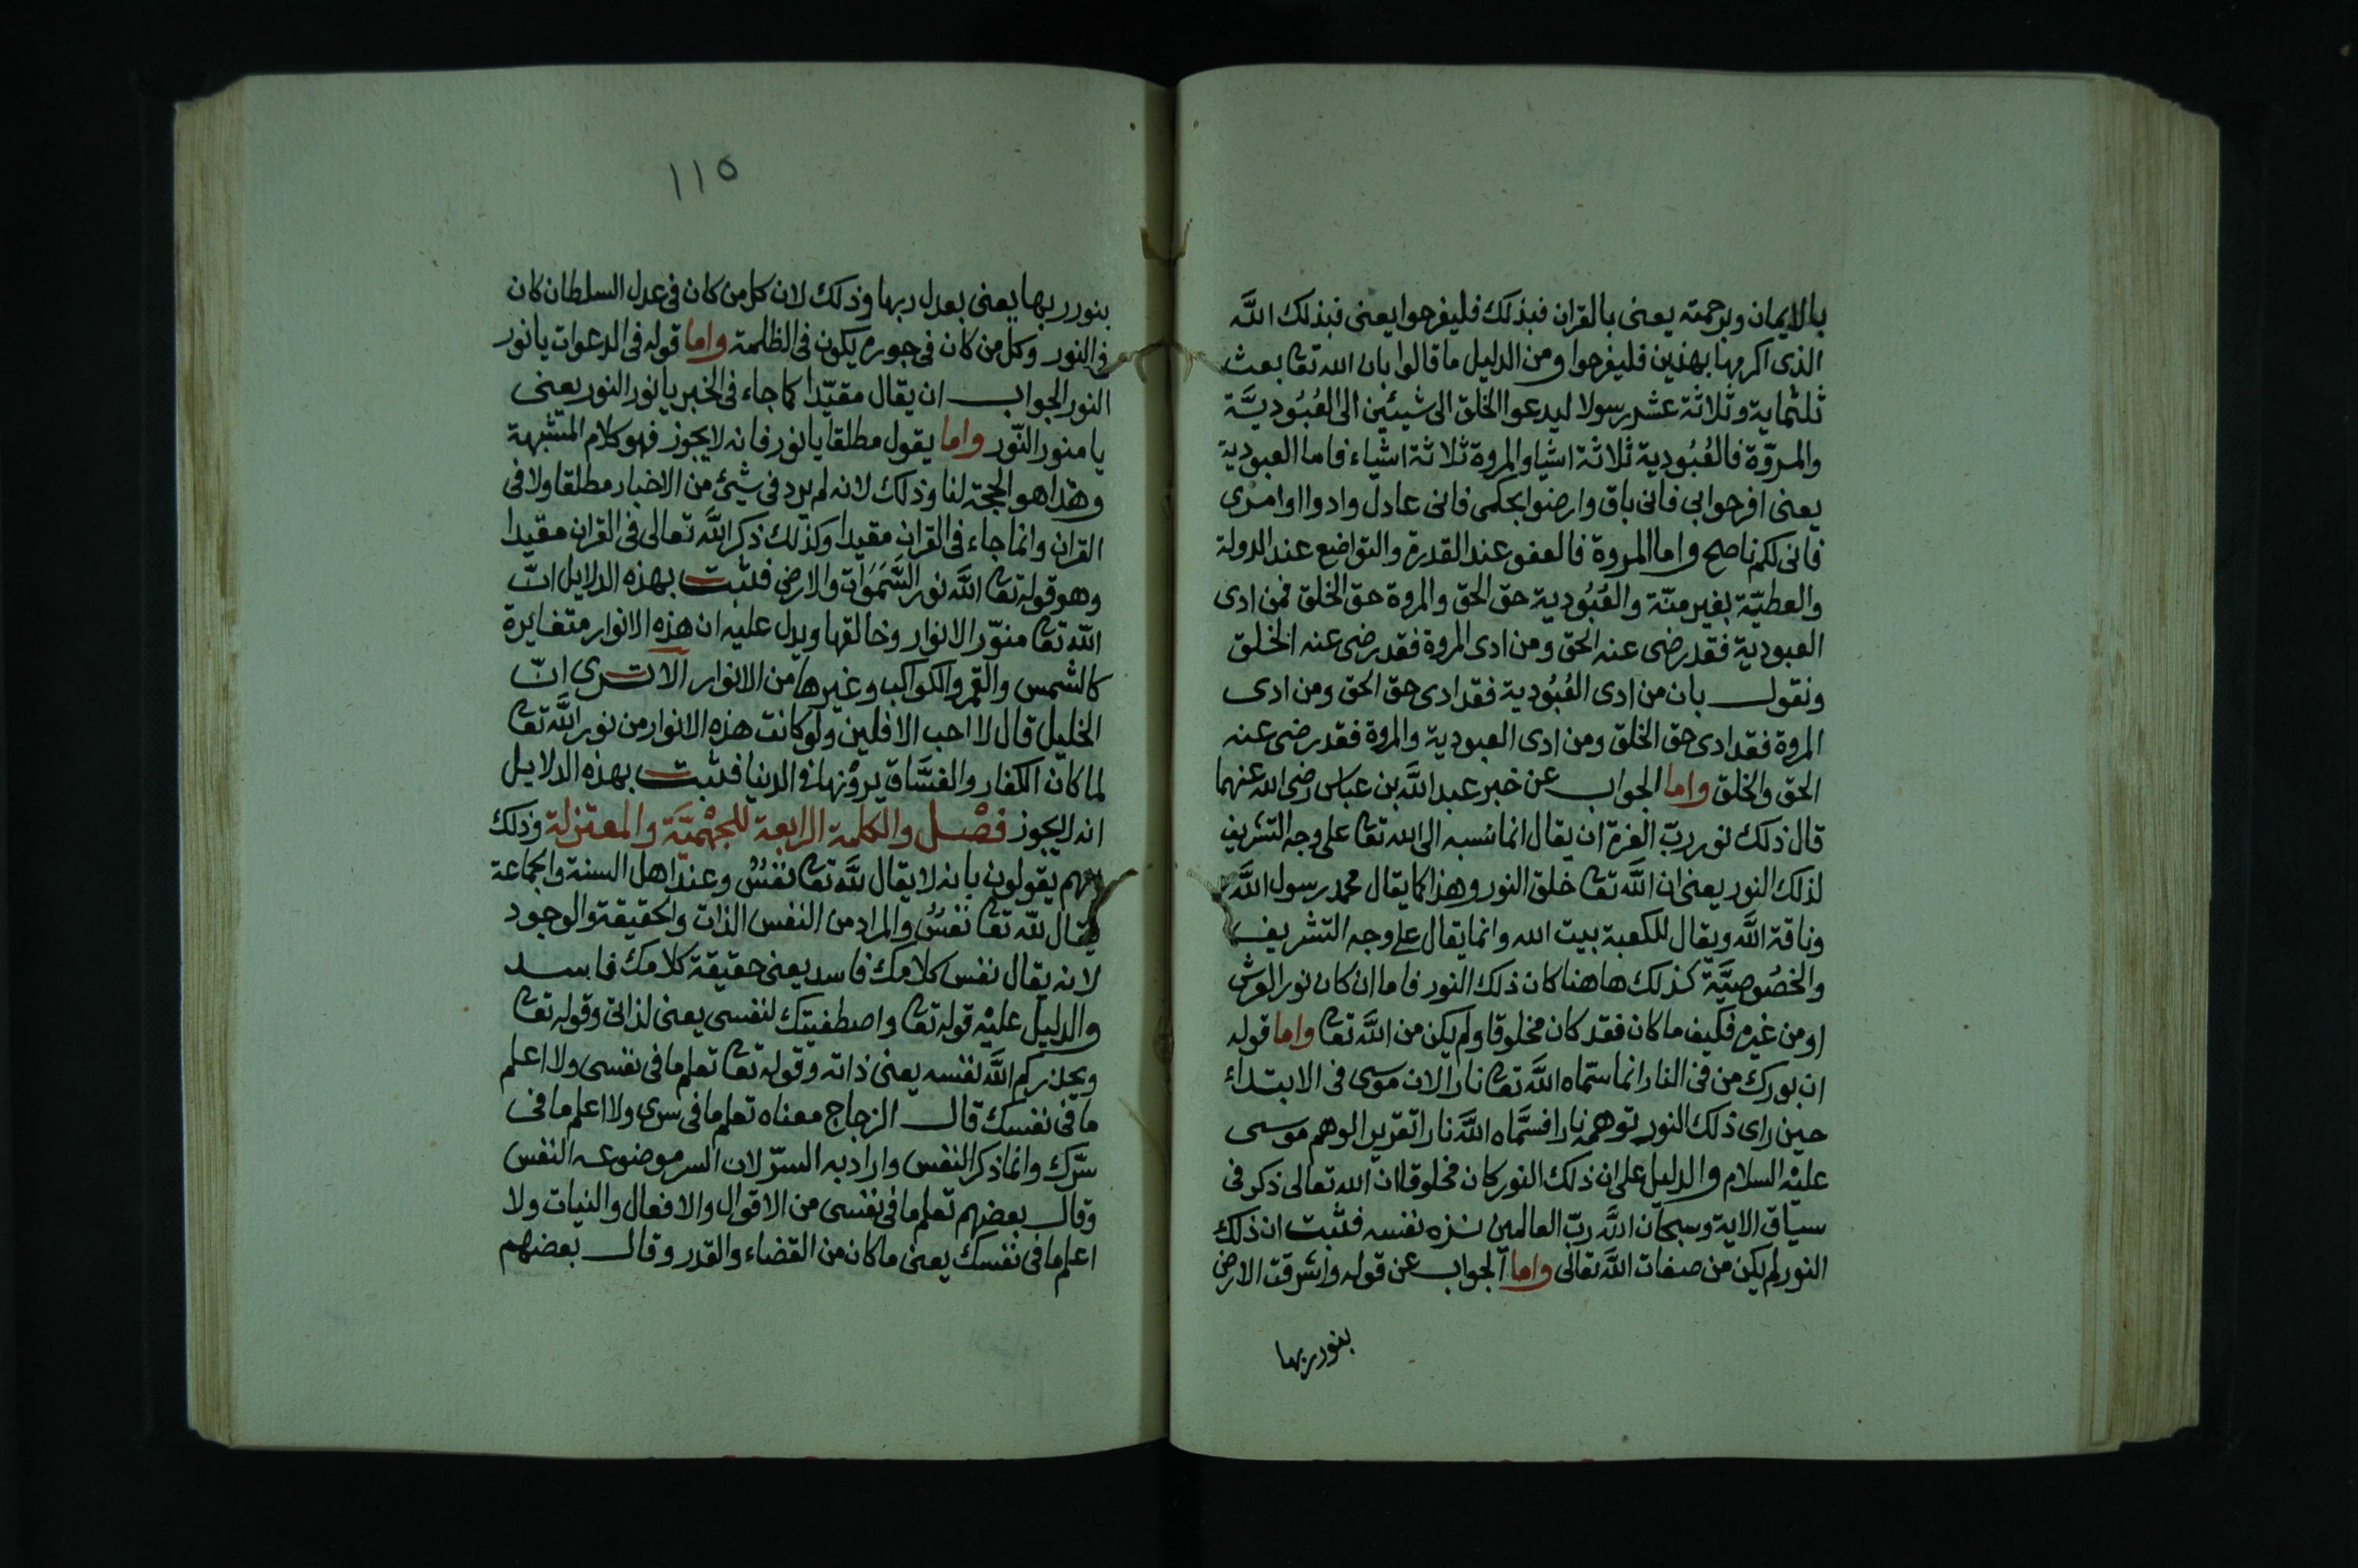 بالايمان وبرحمته يعنى بالقران فبذلك فليفرحوا يعنى فبذلك اللَّه
الذى اكرمهنا بهذين فليفرحوا ومن الدليل ما قالوا بان الله تعا بعث
ثلثماية وثلاثة عشر رسولا ليدعوا الخلق الى شيئين الى العُبُودِيَّة
والمروّة فالعُبُودية ثلاثة اشيا والمروة ثلاثة اشياء فاما العبودية
يعنى افرحوا بى فانى باق وارضوا بحكمى فانى عادل وادوا اوامرى
فانى لكم ناصح واما المروة فالعفو عند القدرة والتواضع عند الدولة
والعطيّة بغير منّة والعُبُودية حق الحق والمروة حق الخلق فمن ادى
العبودية فقد رضى عنه الحق ومن ادى المروة فقد رضى عنه الخلق
ونقول بان من ادى العُبُودية فقد ادى حق الحق ومن ادى
المروة فقد ادى حق الخلق ومن ادى العبودية والمروة فقد رضى عنه
الحق والخلق واما الجواب عن خبر عبد اللَّه بن عباس رضى الله عنهما
قال ذلك نور ربّ العزة ان يقال انما نسبه الى الله تعا على وجه التشريف
لذلك النور يعنى ان اللَّه تعا خلق النور وهذا كما يقال محمد رسول اللَّه
وناقة اللَّه ويقال للكعبة بيت الله وانما يقال على وجه التشريف
والخصُوصِيَّة كذلك هاهنا كان ذلك النور فاما ان كان نور العرش
او من غيره فكيف ما كان فقد كان مخلوقا ولم يكن من اللَّه تعا واما قوله
ان بورك من فى النار انما سمّاه اللَّه تعا نارا لان موسى فى الابتداء
حين راى ذلك النور توهمه نارا فسمَّاه اللَّه نارا تقريرا لوهم موسى
عليْه السلام والدليل على ان ذلك النور كان مخلوقا ان الله تعالى ذكر فى
سياق الاية وسبحان اللَّه ربّ العالمين نزه نفسه فثبت ان ذلك
النور لم يكن من صفات اللَّه تعالى واما الجواب عن قوله واشرقت الارض
بنور ربها
١١٥
بنور ربها يعنى بعدل ربها وذلك لان كل من كان فى عدل السلطان كان
فى النور وكل من كان فى جوره يكون فى الظلمة واما قوله فى الدعوات يا نور
النور الجواب ان يقال مقيّدا كما جاء فى الخبر يا نور النور يعنى
يا منور النّور واما يقول مطلقا يا نور فانه لا يجوز فهو كلام المشبهة
وهذا هو الحجة لنا وذلك لانه لم يرد فى شيئ من الاخبار مطلقا ولا فى
القران وانما جاء فى القران مقيدا وكذلك ذكر اللَّه تعالى فى القران مقيدا
وهو قوله تعا اللَّه نور السَّمَوَات والارض فثبت بهذه الدلايل انّ
اللّه تعا منوّر الانوار وخالقها ويدل عليه ان هذه الانوار متغايرة
كالشمس والقمر والكواكب وغيرها من الانوار الا ترى انّ
الخليل قال لا احب الافلين ولو كانت هذه الانوار من نور اللَّه تعا
لما كان الكفار والفسَّاق يروْنها فى الدنيا فثبت بهذه الدلايل
انه لا يجوز فصْل والكلمة الرابعة للجهْميَّة والمعتزلة وذلك
انهم يقولون بانه لا يقال للَّه تعا نفسٌ وعند اهل السنة والجماعة
يقال للّه تعا نفسٌ والمراد من النفس الذات والحقيقة والوجود
لانه يقال نفس كلامك فاسد يعنى حقيقة كلامك فاسد
والدليل عليْه قوله تعا واصطفيتك لنفسى يعنى لذاتى وقوله تعا
ويحذركم اللَّه نفسه يعنى ذاته وقوله تعا تعلم ما فى نفسى ولا اعلم
ما فى نفسك قال الزجاج معناه تعلم ما فى سرى ولا اعلم ما فى
سّرك وانما ذكر النفس واراد به السرّ لان السر موضوعه النفس
وقال بعضهم تعلم ما فى نفسى من الاقوال والافعال والنيات ولا
اعلم ما فى نفسك يعنى ما كان من القضاء والقدر وقال بعضهم